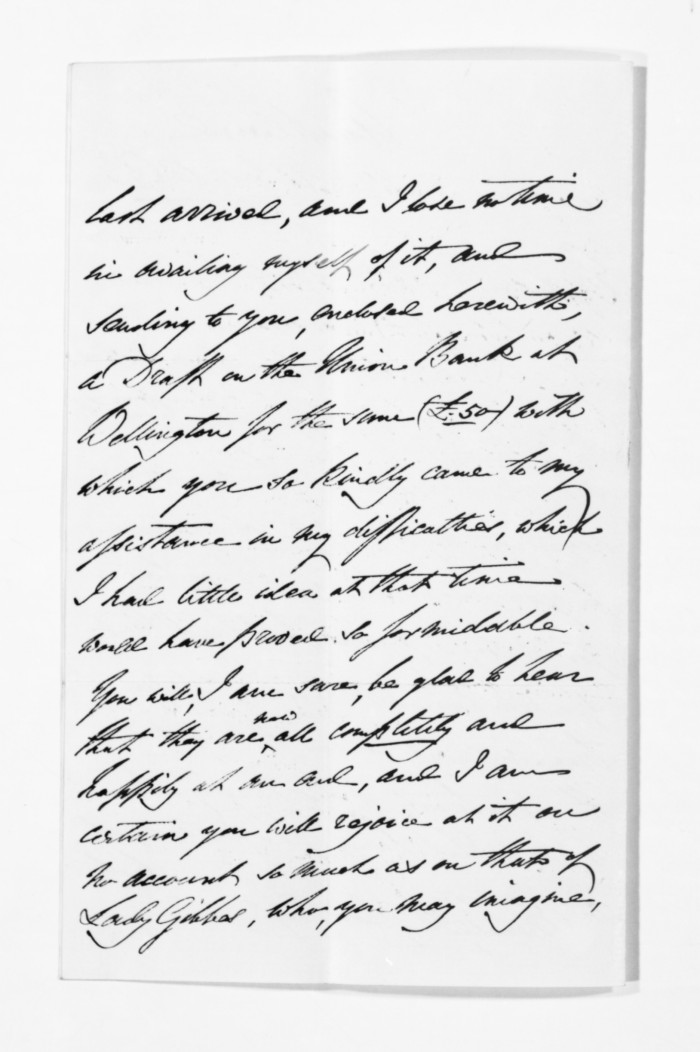 last arrived, and I lose no time
in availing myself of it, and
sending to you, enclosed herewith,
a Draft on the Union Bank at
Wellington for the same (£.50) with
which you so kindly came to my
assistance in my difficulties, which
I had little idea at that time
would have proved so formidable.
You will, I am sure, be glad to hear
that they are, now all completely and
happily at an end, and I am
certain you will rejoice at it on
no account so much as on that of
Lady Gibbes, who, you may imagine,